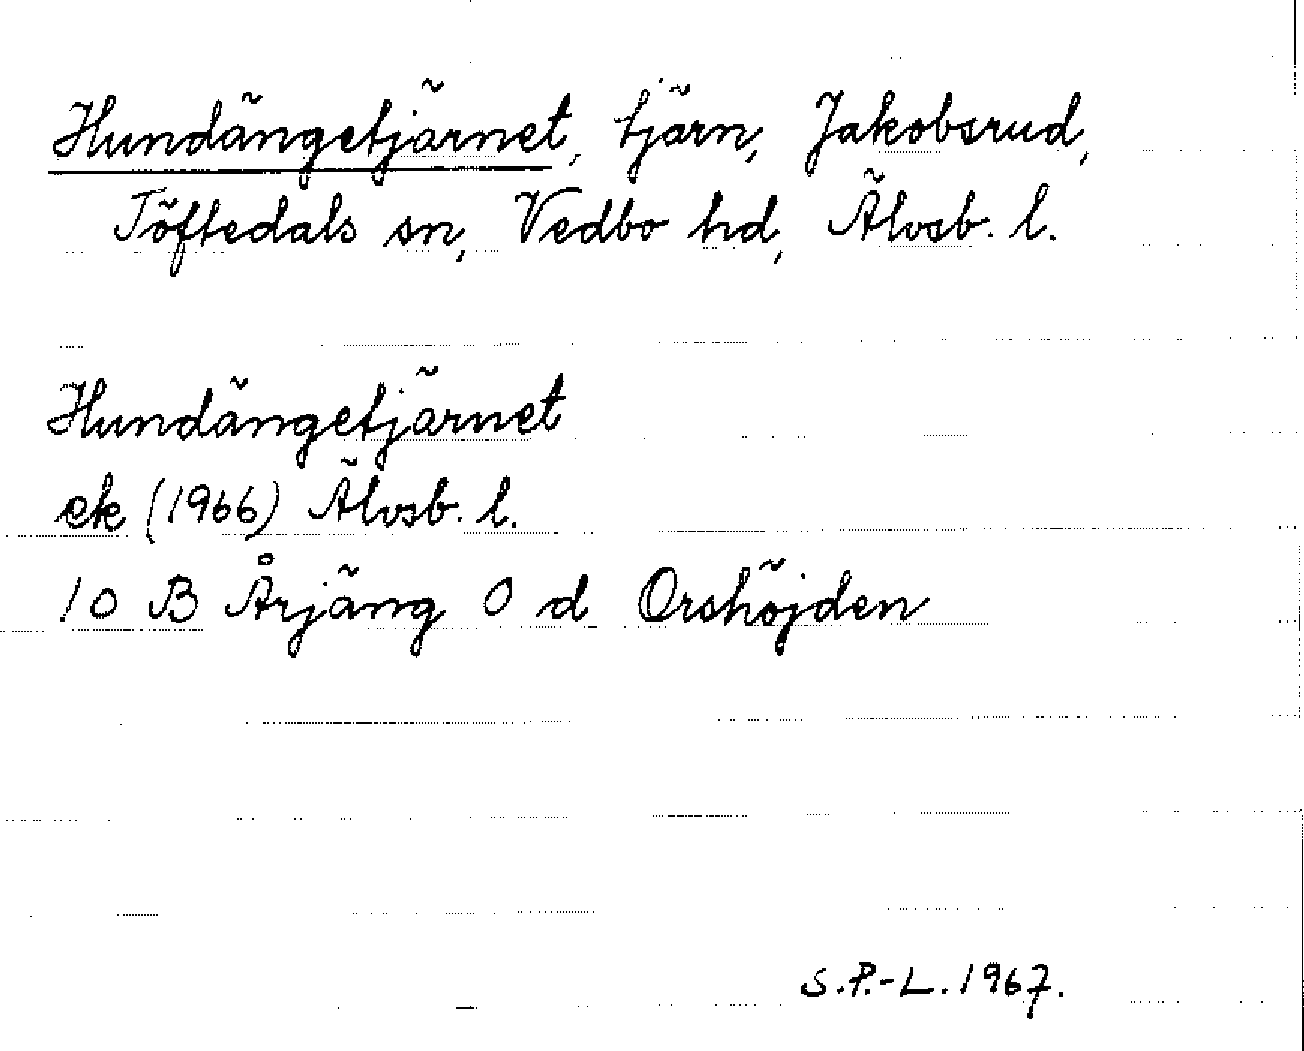 Hundängetjärnet, tjärn, Jakobsrud,
Töftedals sn, Vedbo hd, Älvsb. l.
Hundängetjärnet
ek (1966) Älvsb. l.
10 B Årjäng 0 d Orshöjden
S.P.-L. 1967.